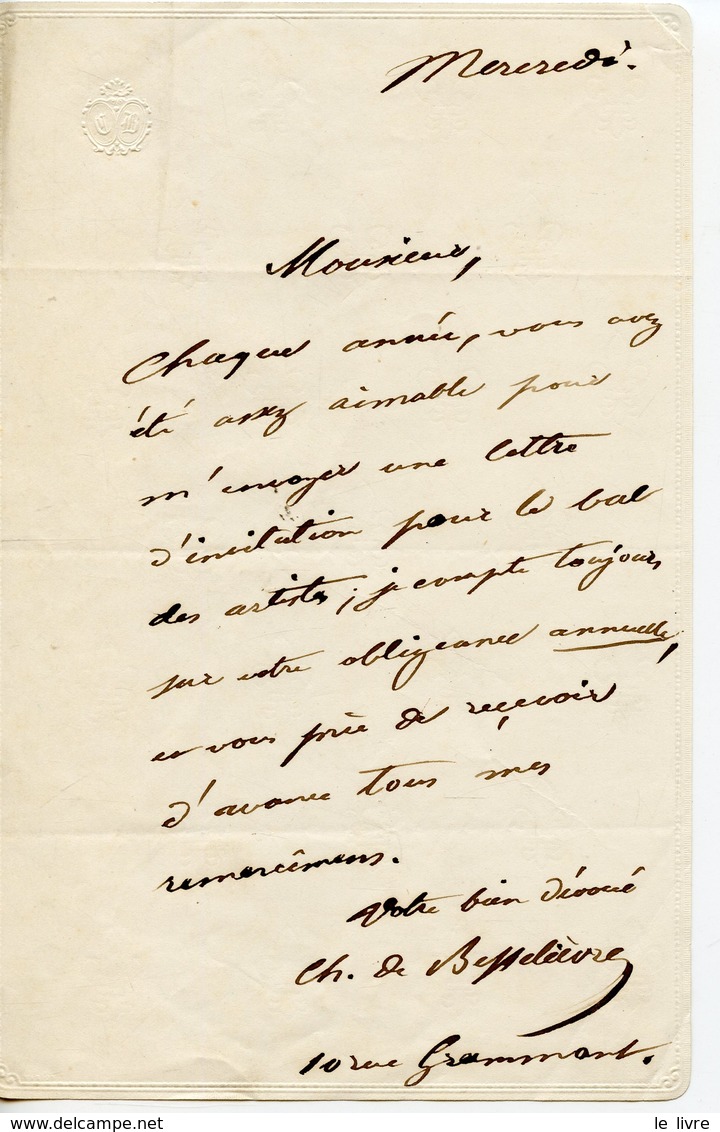 Mercredi.
C B
Monsieur,
Chaque année, vous avez
été assez aimable pour
m'envoyer une lettre
d'invitation pour le bal
des artistes ; je compte toujours
sur votre obligeance annuelle,
et vous prie de reçevoir
d'avance tous mes
remercîmens.
Votre bien dévoué
Ch. de Besselièvre
10 rue Grammont.
le livre